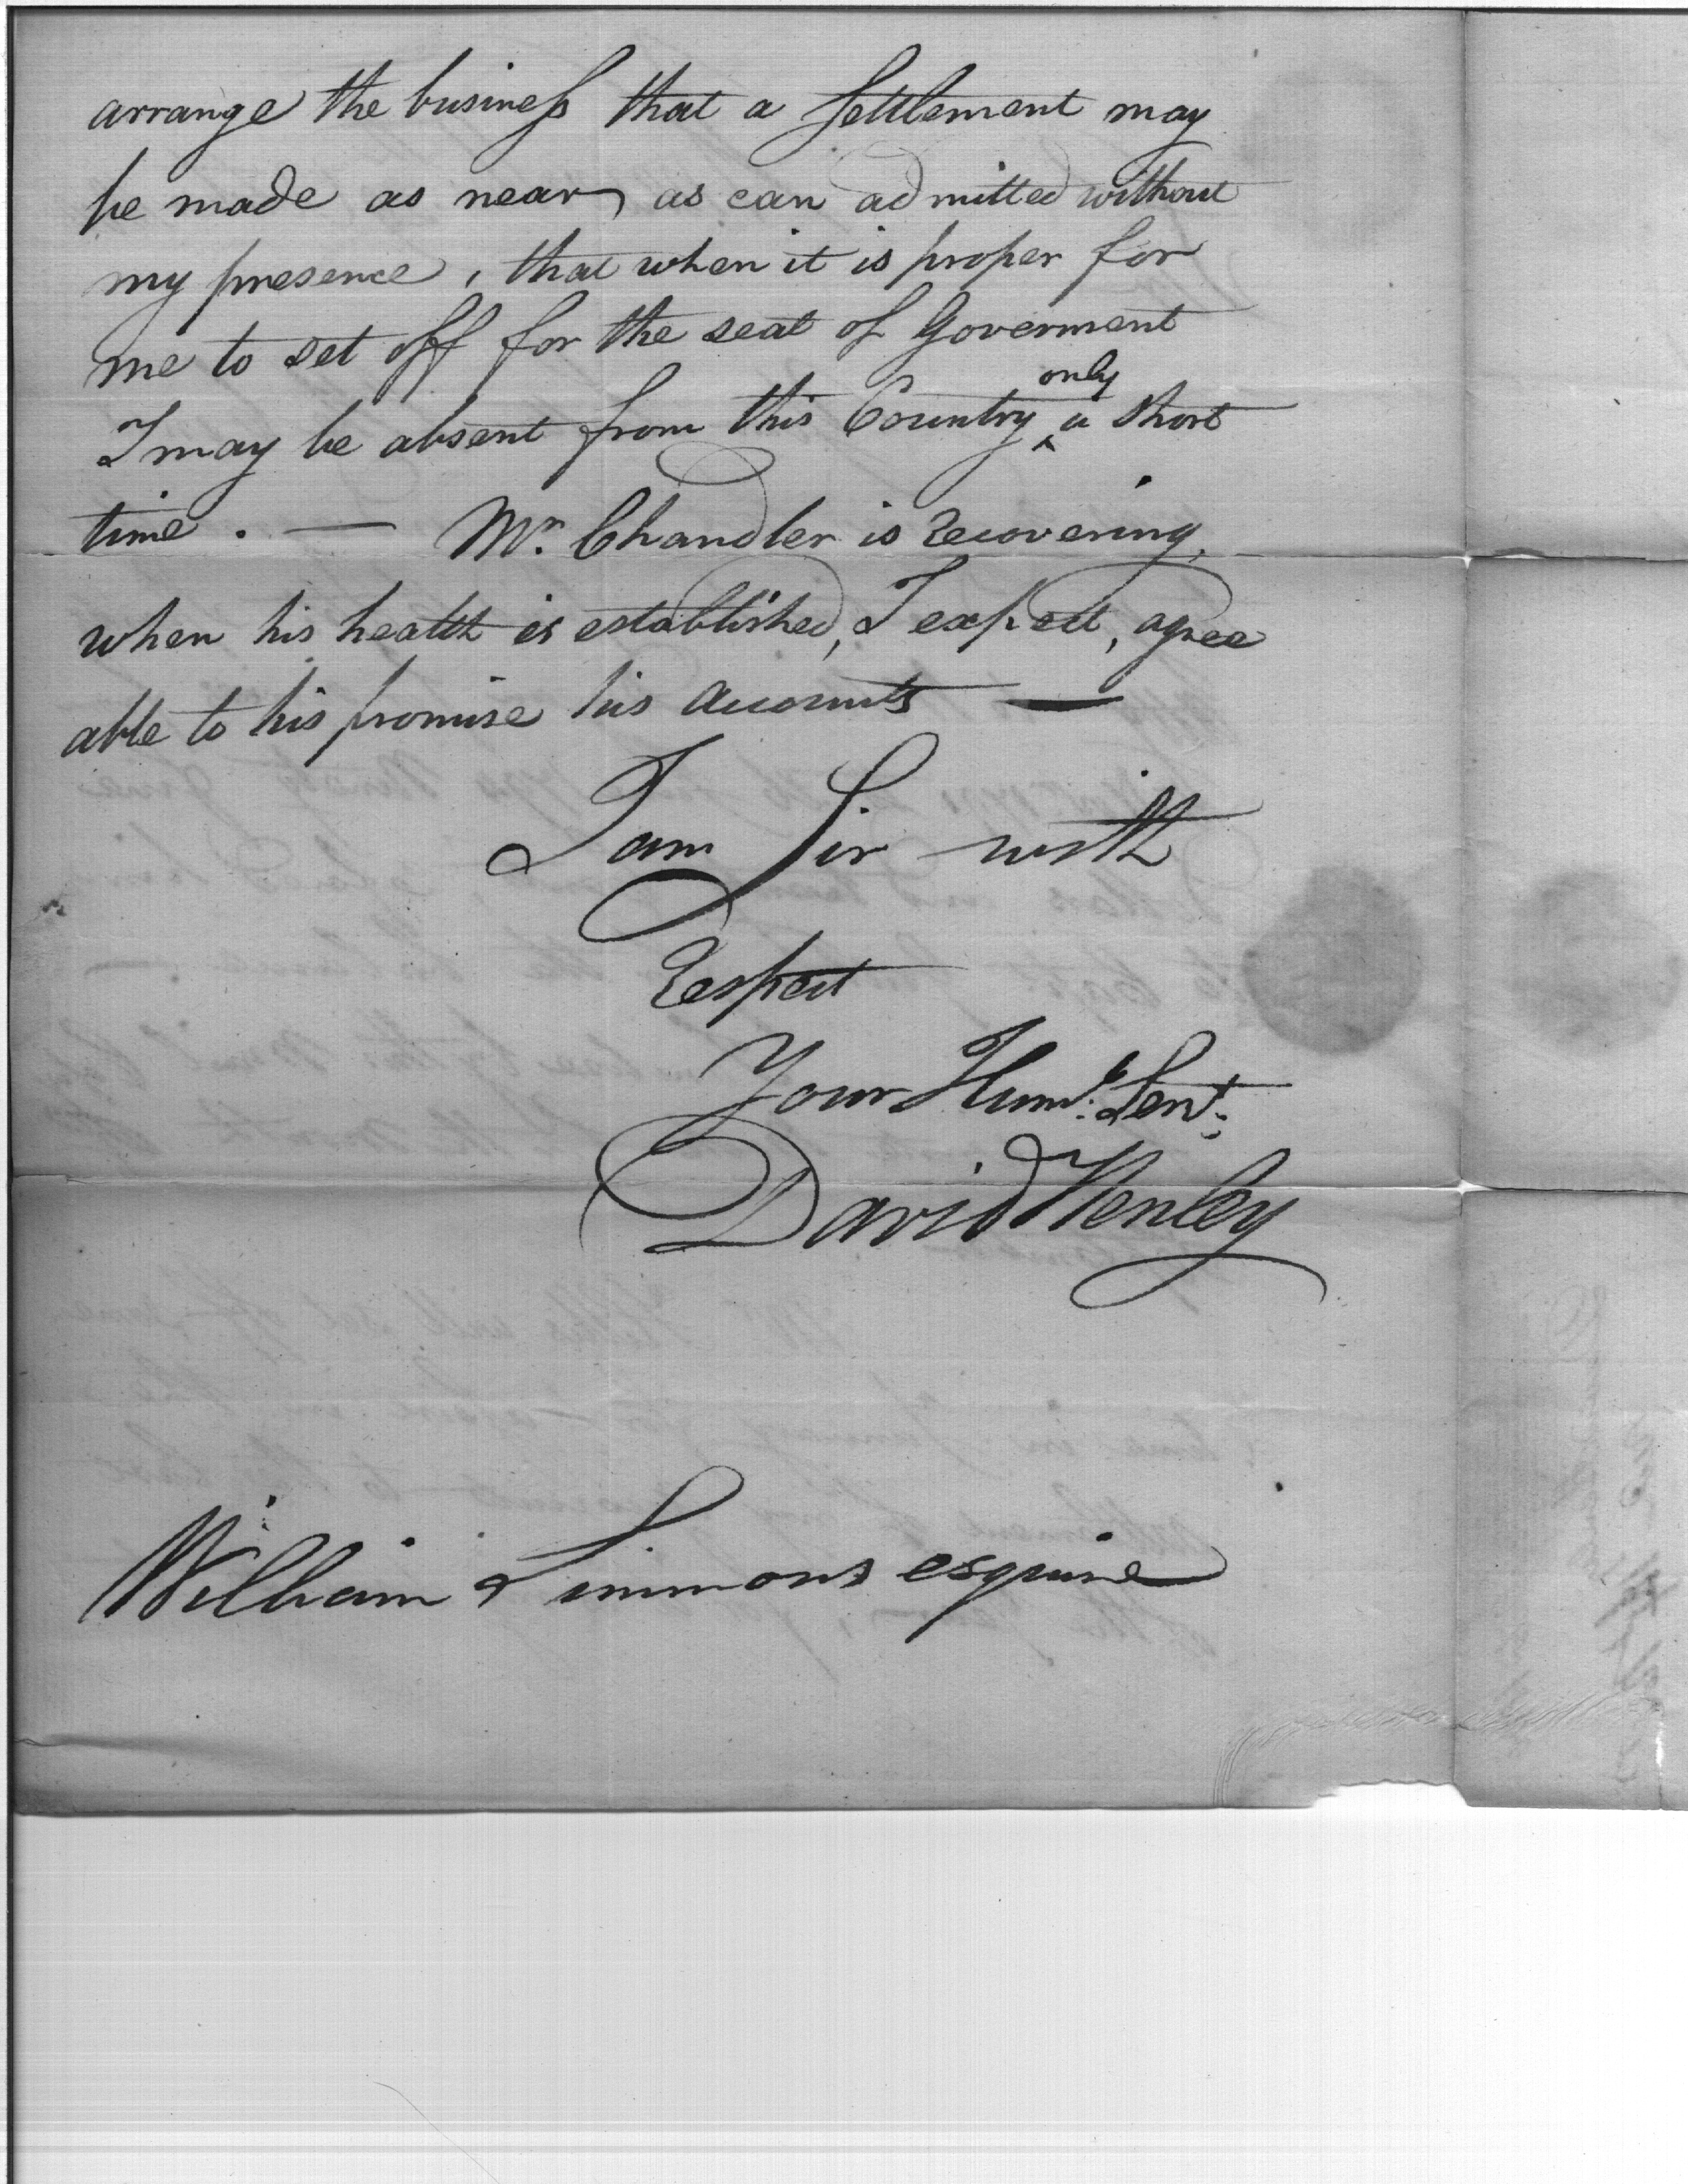 arrange the business that a Settlement may
be made as near as can admitted without
my presence, that when it is proper for
me to set off for the seat of Goverment
I may be absent from this Country only a short
time. — Mr. Chandler is recovering,
when his health is established, I expect, agree
able to his promise his accounts —
I am Sir with
Respect
Your Humb. Sert.
David Henley
William Simmons esquire